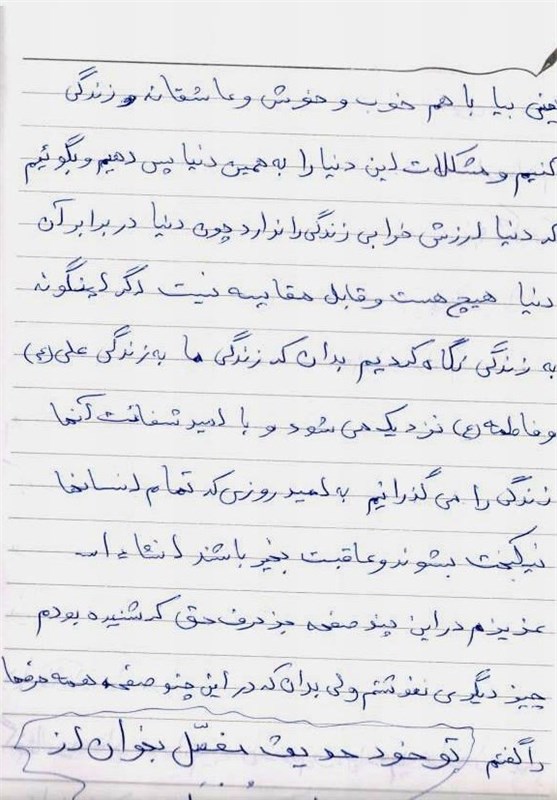 یعنی بیا با هم خوب و خوش و عاشقانه زندگی
کنیم و مشکلات این دنیا را به همین دنیا پس دهیم و بگوئیم
که دنیا ارزش خرابی زندگی را ندارد چون دنیا در برابر آن
دنیا هیچ هست و قابل مقایسه نیست اگر اینگونه
به زندگی نگاه کردیم بدان که زندگی ما به زندگی علی (ع)
و فاطمه (ع) نزدیک می شود و با امید شفائت آنها
زندگی را می گذرانیم به امید روزی که تمام انسانها
نیکبخت بشوند و عاقبت بخیر باشند انشاءا...
عزیزم در این چند صفحه جز حرف حق که شنیده بودم
چیز دیگری ننوشتم ولی بدان که در این چند صفحه همه حرفها
را گفتم تو خود حدیث مفصّل بخوان از